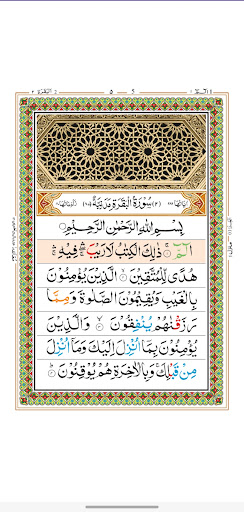 سُوْرَةُ الْبَقَرَةِ مَدَنِيَّةٌ
بِسْمِ اللّٰهِ الرَّحْمٰنِ الرَّحِيْمِ
الٓمّٓ ۚ ذٰلِكَ الْكِتٰبُ لَا رَيْبَ ۛ فِيْهِ ۛ
هُدًى لِّلْمُتَّقِيْنَ ۙ الَّذِيْنَ يُؤْمِنُوْنَ
بِالْغَيْبِ وَيُقِيْمُوْنَ الصَّلٰوةَ وَمِمَّا
رَزَقْنٰهُمْ يُنْفِقُوْنَ ۙ وَالَّذِيْنَ
يُؤْمِنُوْنَ بِمَآ اُنْزِلَ اِلَيْكَ وَمَآ اُنْزِلَ
مِنْ قَبْلِكَ ۚ وَبِالْاٰخِرَةِ هُمْ يُوْقِنُوْنَ ۭ